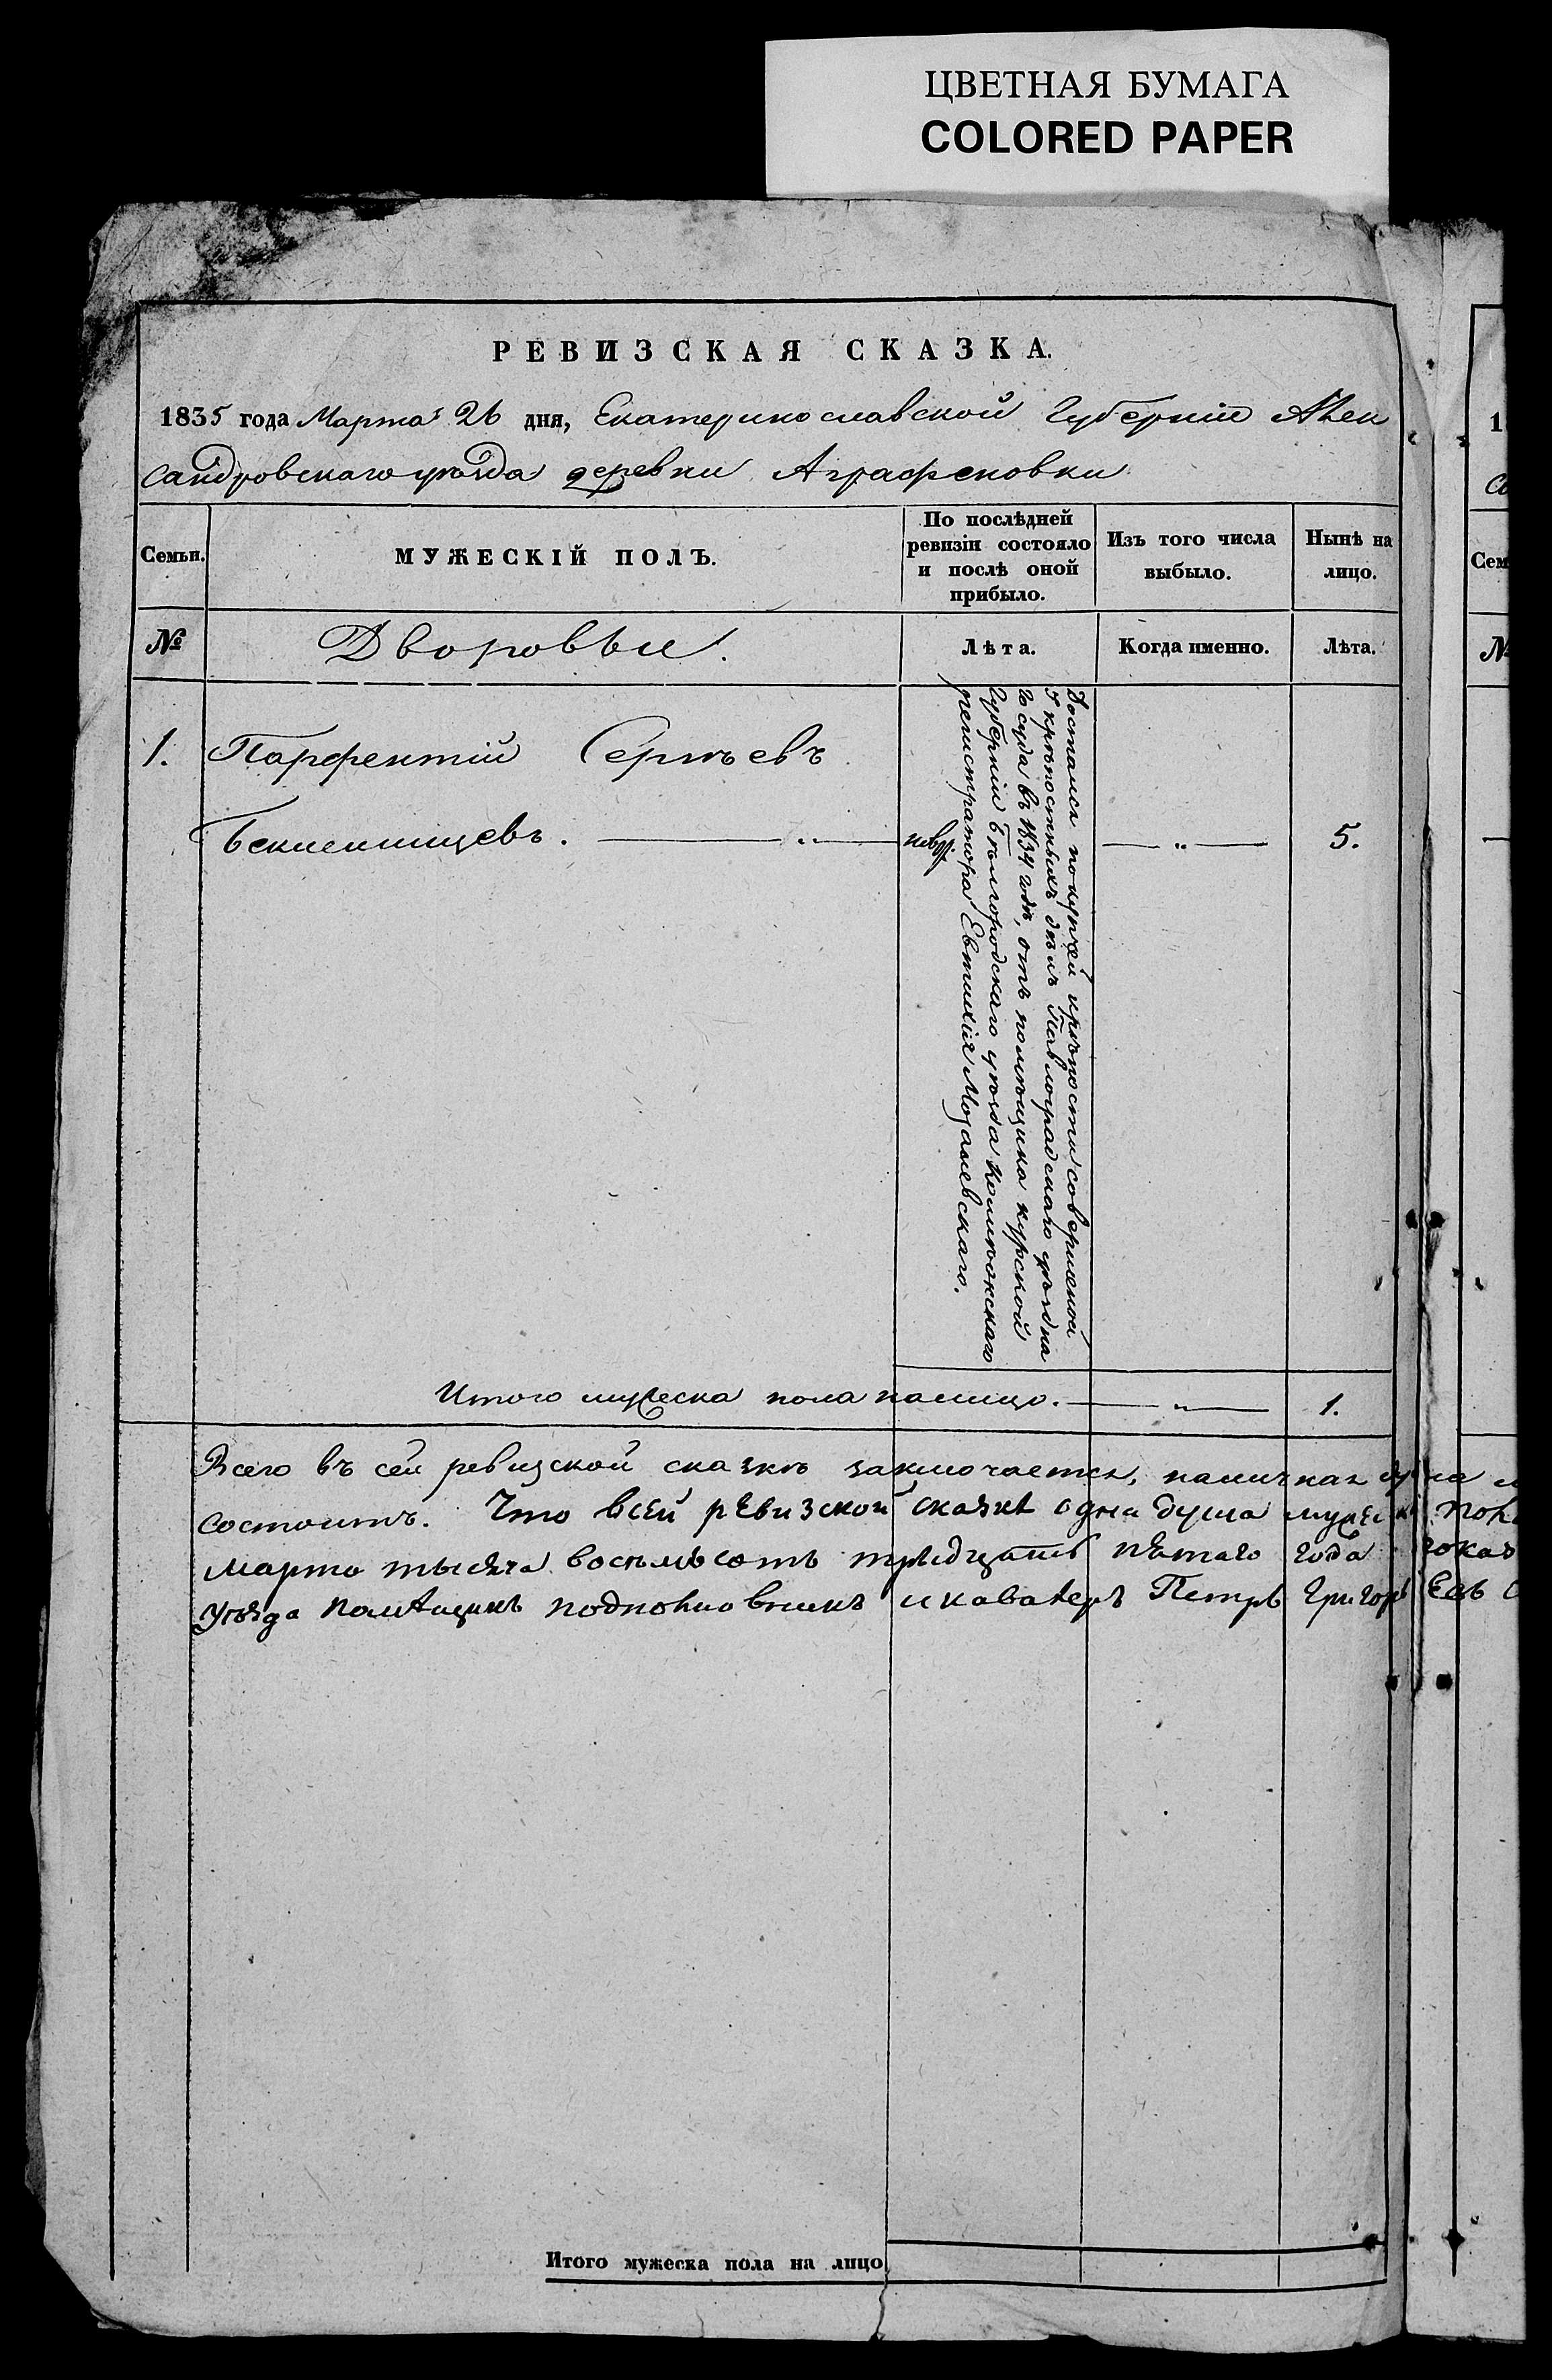 ЦВЕТНАЯ БУМАГА
COLORED PAPER
РЕВИЗСКАЯ СКАЗКА.
1835 года Марта 26 дня, Екатеринославской Губерніи Алек
сандровскаго уѣзда деревни Аграфеновки
Семьи.
МУЖЕСКІЙ ПОЛЪ.
По послѣдней
ревизіи состояло
и послѣ оной
прибыло.
Изъ того числа
выбыло.
Нынѣ на
лицо.
№
Дворовые.
Лѣта.
Когда именно.
Лѣта.
1. Парфентій Сергѣевъ
5.
Достался покупкой крѣпости совершеной
У крѣпостныхъ дѣлъ Павлоградскаго уѣздна
го суда въ 1834 годѣ, отъ помѣщика курской
Губерніи Бѣлгородскаго уѣзда Колѣжскаго
регистратора Евтихія
Итого мужеска пола налицо. 1.
Всего въ сей ревизской сказкѣ заключается, наличная
состоитъ. Что всей рЕвизской сказкѣ одна душа мужеск
марта тысяча восемьсотъ тридцать пятаго года
Уѣзда помѣщикъ подполковникъ икавалеръ Петръ Григорь Евъ
Итого мужеска пола на лицо
1
Сем
№